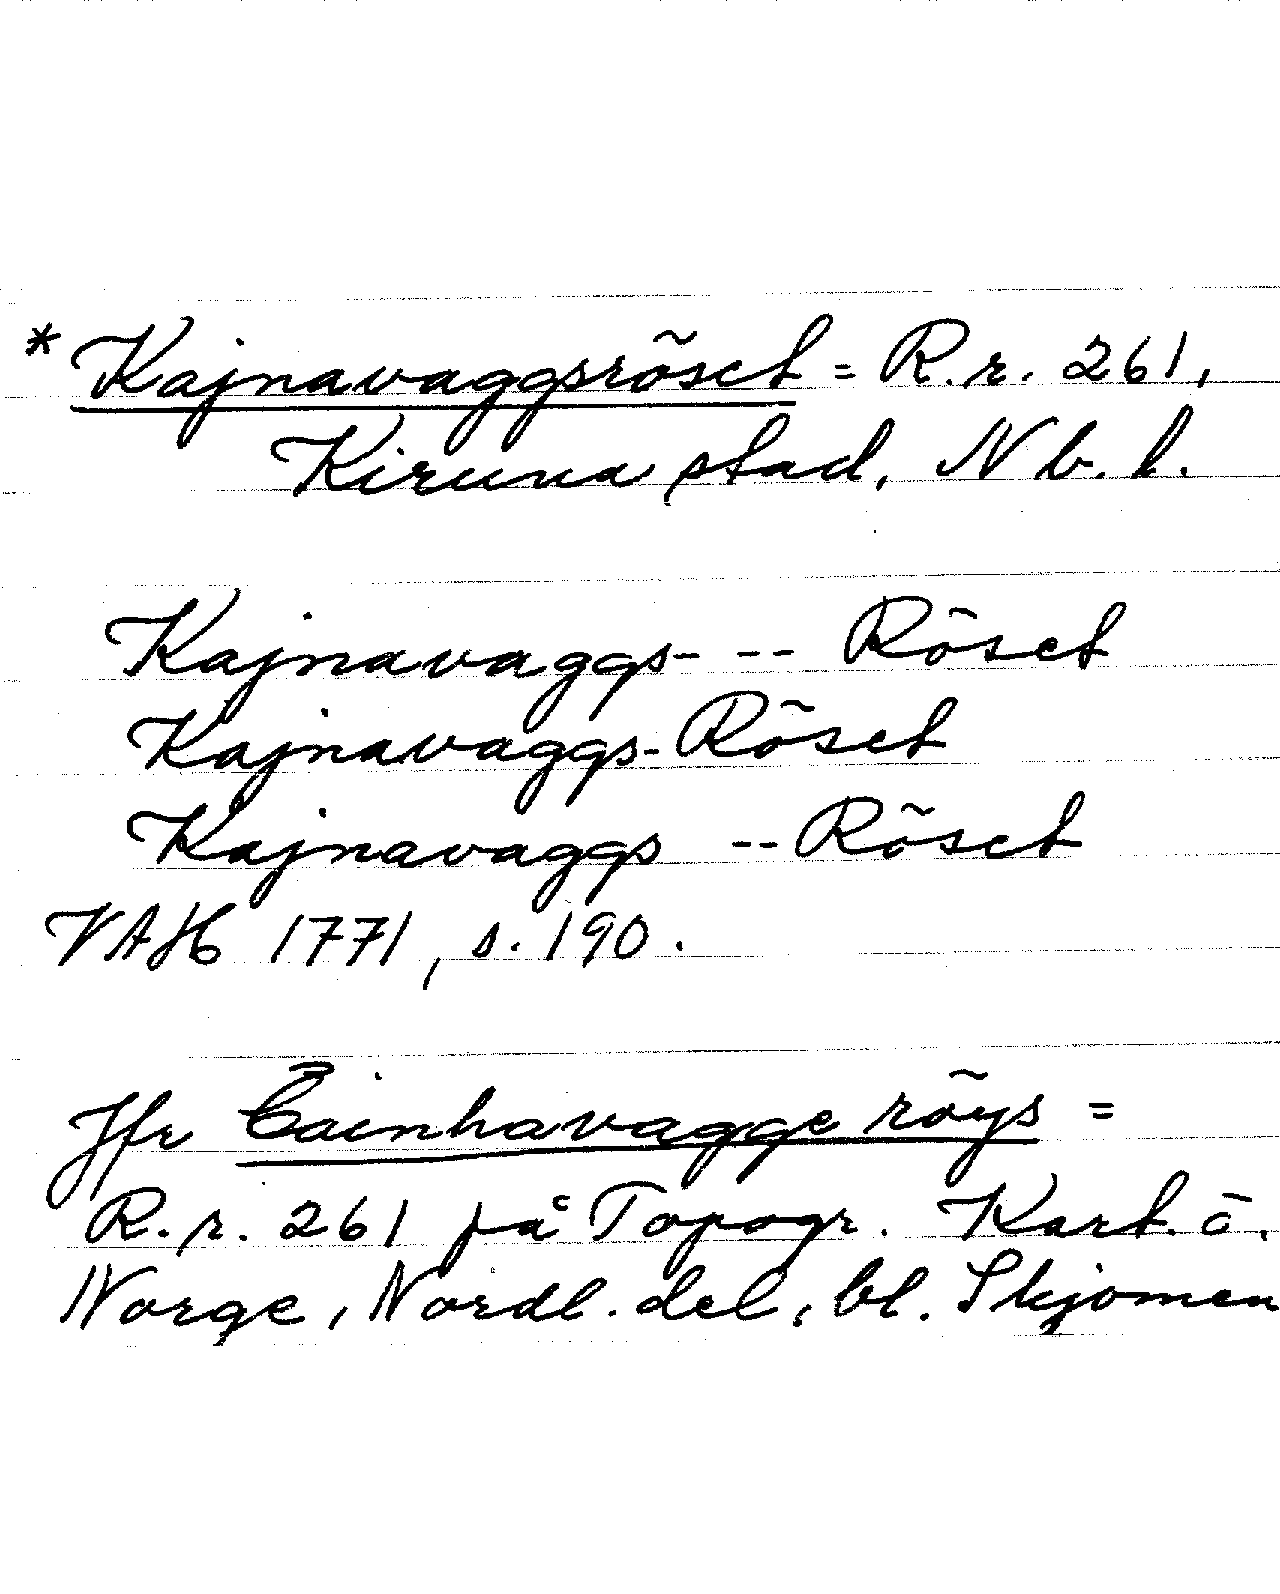 * Kajnavaggsröset = R.r. 261,
Kiruna stad, Nb. l.
Kajnavaggs- -- Röset
Kajnavaggs-Röset
Kajnavaggs -- Röset
VAH 1771, s. 190.
Jfr Cainhavagge röys =
R.r. 261 på Topogr. Kart. ö.
Norge, Nordl. del, bl. Skjomen